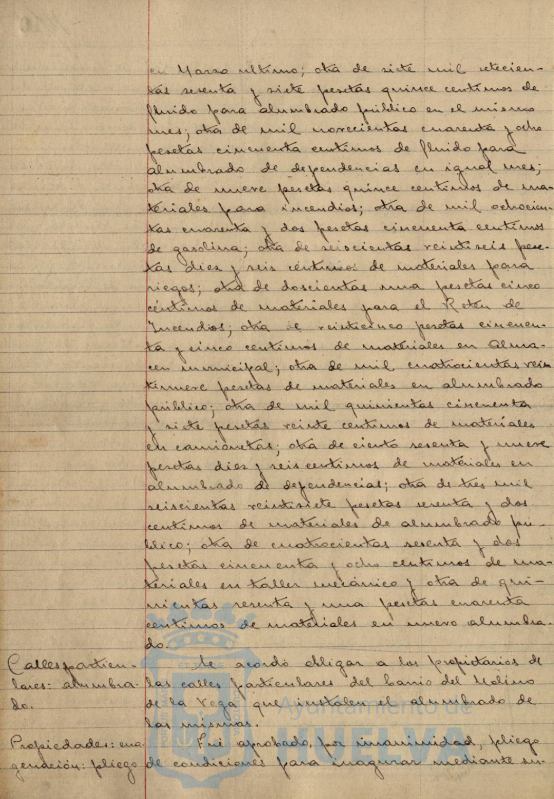 en Marzo ultimo; otra de siete mil setecien-
tas sesenta y siete pesetas quince centimos de
fluido para alumbrado público en el mismo
mes; otra de mil novecientas cuarenta y ocho
pesetas cincuenta centimos de fluido para
alumbrado de dependencias en igual mes;
otra de nueve pesetas quince centimos de ma-
teriales para incendios; otra de mil ochocien-
tas cuarenta y dos pesetas cincuenta centimos
de gasolina; otra de seiscientas veintiseis pese-
tas diez y seis céntimos de materiales para
riegos; otra de doscientas una pesetas cinco
céntimos de materiales para el Reten de
Incendios; otra de veinticinco pesetas cincuen-
ta y cinco centimos de materiales en Alma-
cen municipal; otra de mil cuatrocientas vein
tinueve pesetas de materiales en alumbrado
público; otra de mil quinientas cincuenta
y siete pesetas veinte centimos de materiales
en camionetas; otra de ciento sesenta y nueve
pesetas diez y seis centimos de materiales en
alumbrado de dependencias; otra de tres mil
seiscientas veintisiete pesetas setenta y dos
centimos de materiales de alumbrado pú-
blico; otra de cuatrocientas sesenta y dos
pesetas cincuenta y ocho centimos de ma-
teriales en taller mecánico y otra de qui-
nientas sesenta y una pesetas cuarenta
centimos de materiales en nuevo alumbra-
do.
Calles particu-
lares: alumbra-
do.
Se acordó obligar a los propietarios de
las calles particulares del barrio del Molino
de la Vega que instalen el alumbrado de
las mismas.
Propiedades: ena-
genación: pliego
Fué aprobado, por unanimidad, pliego
de condiciones para enagenar mediante su-
Ayuntamiento de
HUELVA